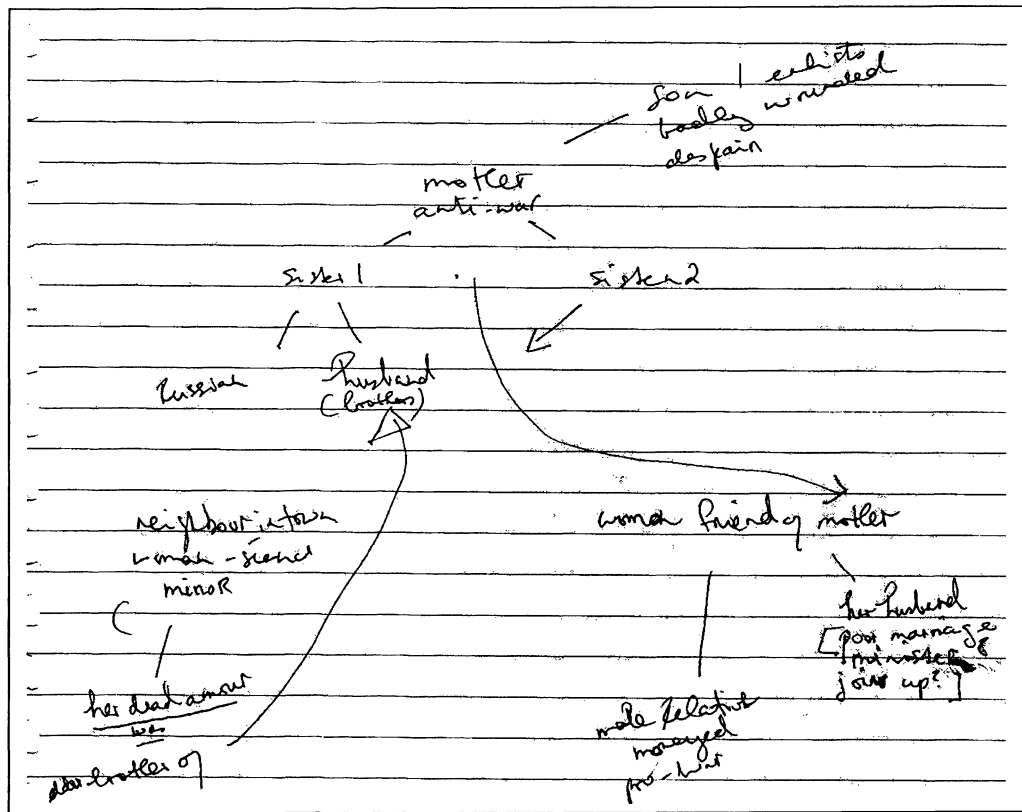 son | enlists
badly wounded
despair
mother
anti-war
sister 1
sister 2
Russian
husband
(brothers)
neighbour in town
woman -
minor
woman friend of mother
her husband
[poor marriage
minister
joins up?]
her dead amour
was
elder brother of
male relative
moneyed
pro-war